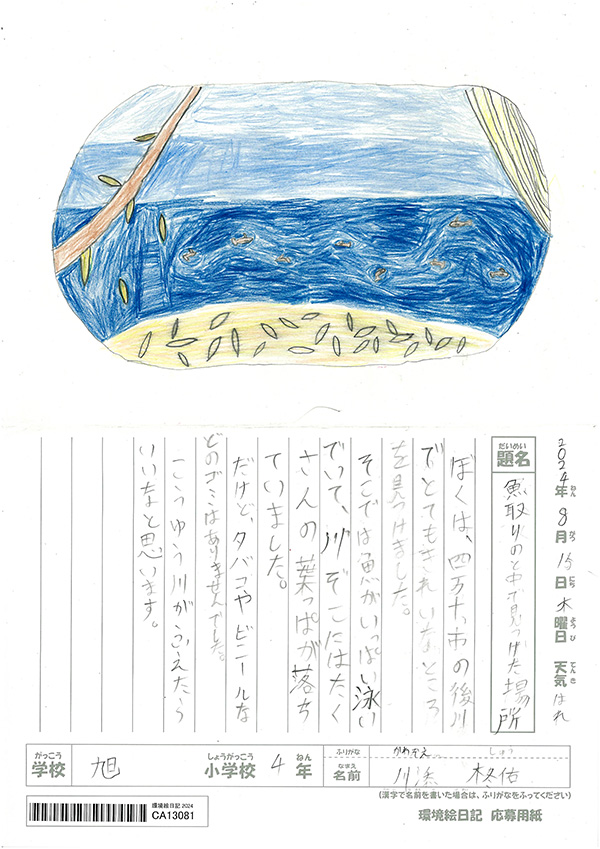 2024年8月15日木曜日 天気はれ
だいめい
題名 魚取りのと中で見つけた場所
ぼくは、四万十市の後川
でとてもきれいなところ
を見つけました。
そこでは魚がいっぱい泳い
でいて、川ぞこにはたく
さんの葉っぱが落ち
ていました。
だけど、タバコやビニールな
どのゴミはありませんでした。
こうゆう川がふえたら
いいなと思います。
がっこう 学校 旭 しょうがっこう 小学校 4 ねん 年
ふりがな かわぞえ しゅう
なまえ 名前 川添 柊佑
(漢字で名前を書いた場合は、ふりがなをふってください)
環境絵日記 2024
CA13081
環境絵日記 応募用紙